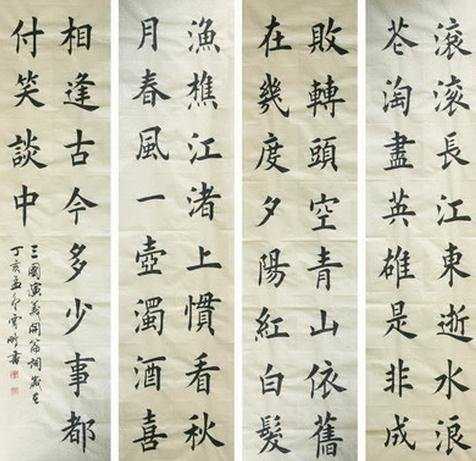 滚滚長江東逝水浪
花淘盡英雄是非成
敗轉頭空青山依舊
在幾度夕陽紅白髮
漁樵江渚上慣看秋
月春風一壺濁酒喜
相逢古今多少事都
付笑談中
三國演義開篇詞歲在
丁亥孟書